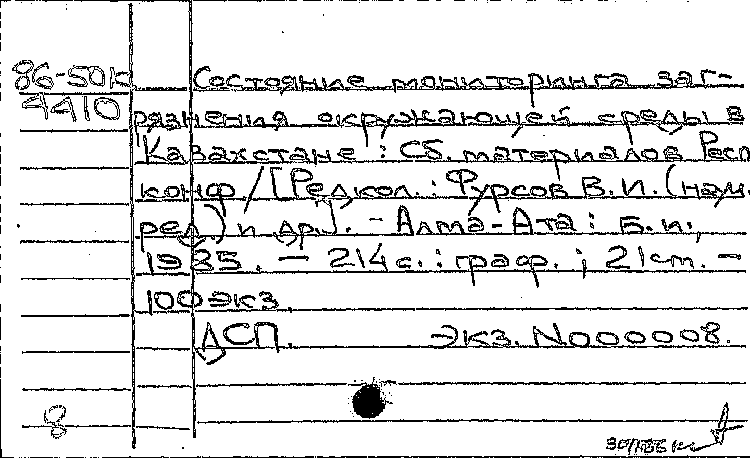 86-50к
4410
Состояние мониторинга заг-
рязнения окружающей среды в
Казахстане : Сб. материалов Респ
конф / [Редкол. : Фурсов В. И. (науч.
ред) и др.]. - Алма-Ата : Б. и.,
1985. - 214 с. : граф. ; 21 см. -
100 экз.
ДСП. Экз. N000008.
8